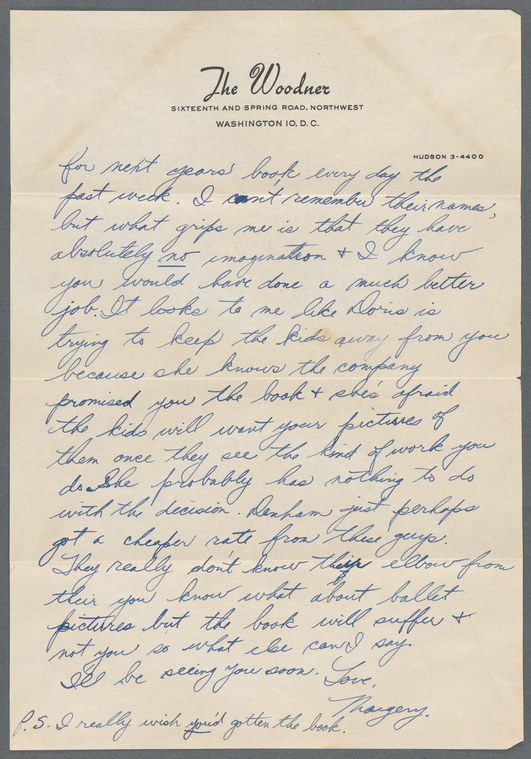 The Woodner
SIXTEENTH AND SPRING ROAD, NORTHWEST
WASHINGTON 10, D.C.
HUDSON 3-4400
for next years' book every day the
past week. I can't remember their names,
but what grips me is that they have
absolutely no imagination + I know
you would have done a much better
job. It looks to me like Doris is
trying to keep the kids away from you
because she knows the company
promised you the book + she's afraid
the kids will want your pictures of
them once they see the kind of work you
do. She probably has nothing to do
with the decision. Denham just perhaps
got a cheaper rate from these guys.
They really don't know their elbow from
their you know what about ballet
pictures but the book will suffer +
not you so what else can I say.
I'll be seeing you soon. Love,
Margery.
P.S. I really wish you'd gotten the book.